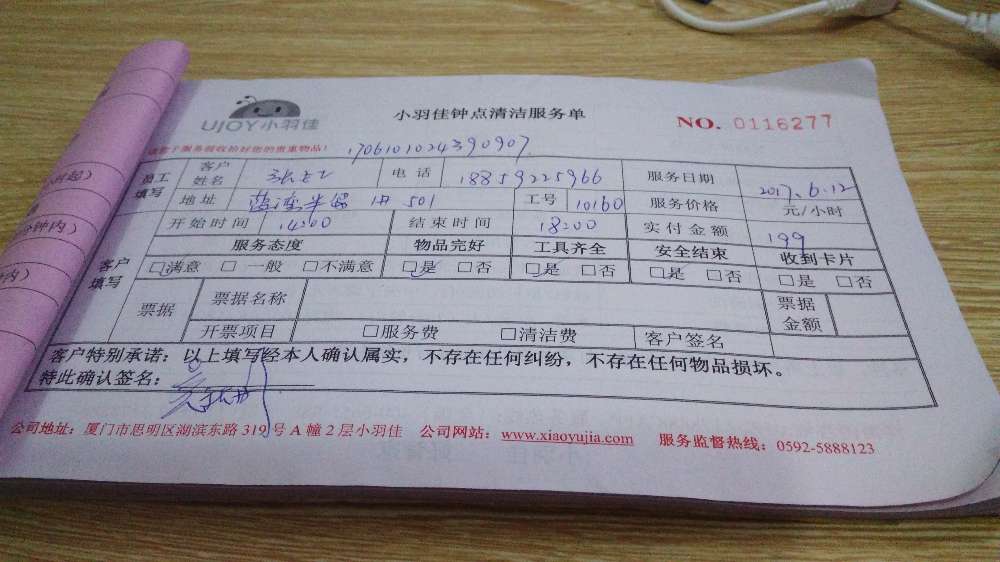 UJOY小羽佳
小羽佳钟点清洁服务单
NO. 0116277
170610102439090​7
员工填写 客户姓名 电话 18859225966 服务日期 2017.6.12
地址 501 工号 10160 服务价格 元/小时
开始时间 14:00 结束时间 18:00 实付金额 199
客户填写 服务态度 物品完好 工具齐全 安全结束 收到卡片
□满意 □一般 □不满意 □是 □否 □是 □否 □是 □否 □是 □否
票据 票据名称 票据金额
开票项目 □服务费 □清洁费 客户签名
客户特别承诺：以上填写经本人确认属实，不存在任何纠纷，不存在任何物品损坏。
特此确认签名：
公司地址：厦门市思明区湖滨东路319号A幢2层小羽佳 公司网站：www.xiaoyujia.com 服务监督热线：0592-5888123